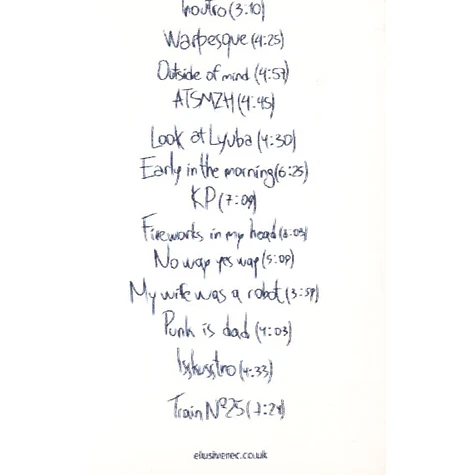 Inoutro (3:10)
Warpesque (4:25)
Outside of mind (4:57)
ATSMZH (4:45)
Look at Lyuba (4:30)
Early in the morning (6:25)
KP (7:09)
Fireworks in my head
No wap yes wap (5:09)
My wife was a robot (3:59)
Punk is dad (4:03)
Isskusstno (4:33)
Train Nº25
ellusiverec.co.uk